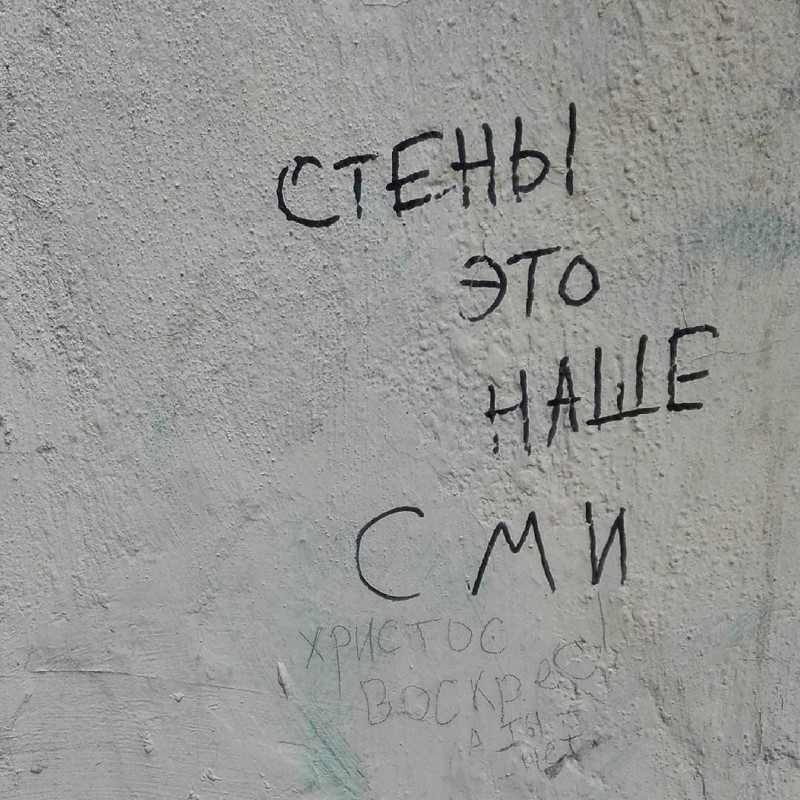 СТЕНЫ
ЭТО
НАШЕ
СМИ
ХРИСТОС
ВОСКРеС
А ТЫ
НЕТ